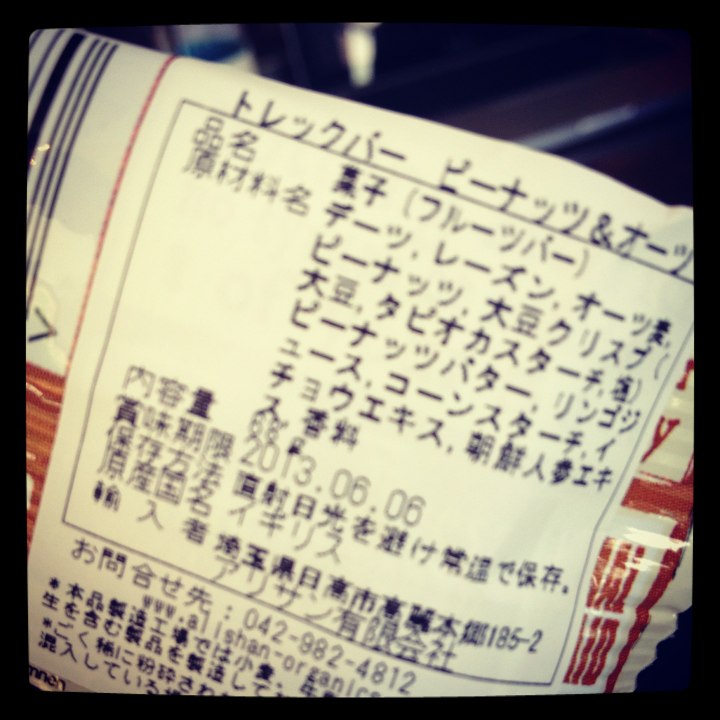 トレックバー ピーナッツ&オーツ
品名 菓子(フルーツバー)
原材料名 デーツ,レーズン,オーツ麦,
ピーナッツ,大豆クリスプ(
大豆,タピオカスターチ,塩)
ピーナッツバター,リンゴジ
ュース,コーンスターチ,イ
チョウエキス,朝鮮人参エキ
ス,香料
内容量 68g
賞味期限 2013.06.06
保存方法 直射日光を避け常温で保存。
原産国名 イギリス
輸入者 埼玉県日高市高麗本郷185-2
アリサン有限会社
お問合せ先:042-982-4812
www.alishan-organics
*本品製造工場では小麦,
生を含む製品を製造して
*ごく稀に粉砕され
混入している